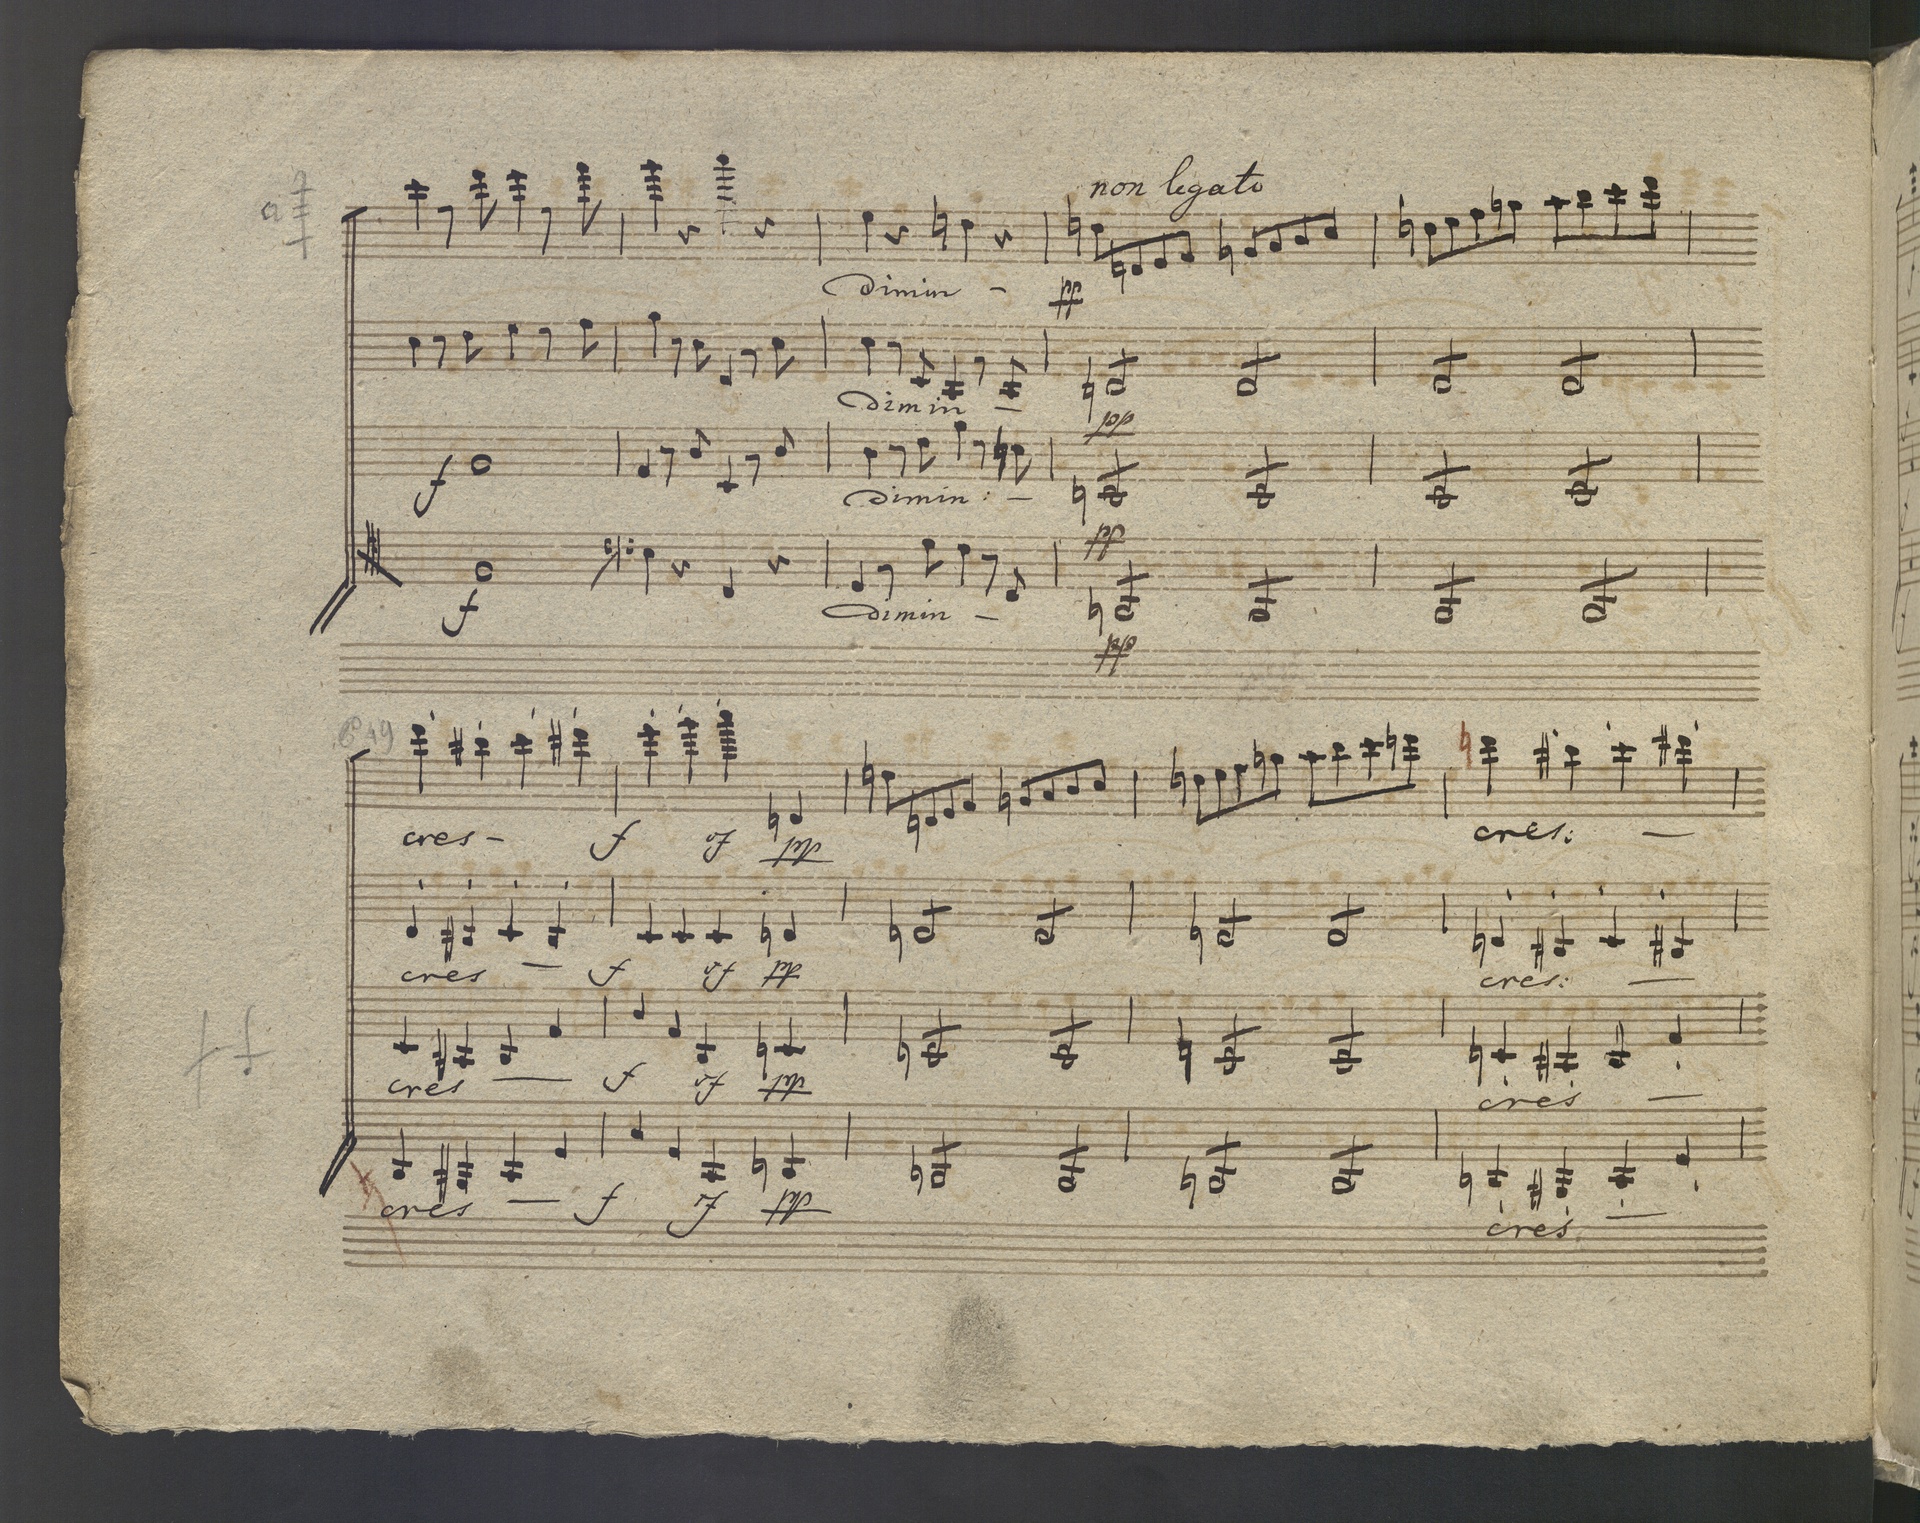 non legato
Dimin - pp
Dimin - pp
f Dimin: - pp
f Dimin - pp
cres - f sf pp cres: -
cres - f sf pp cres: -
cres - f sf pp cres -
cres - f sf pp cres -